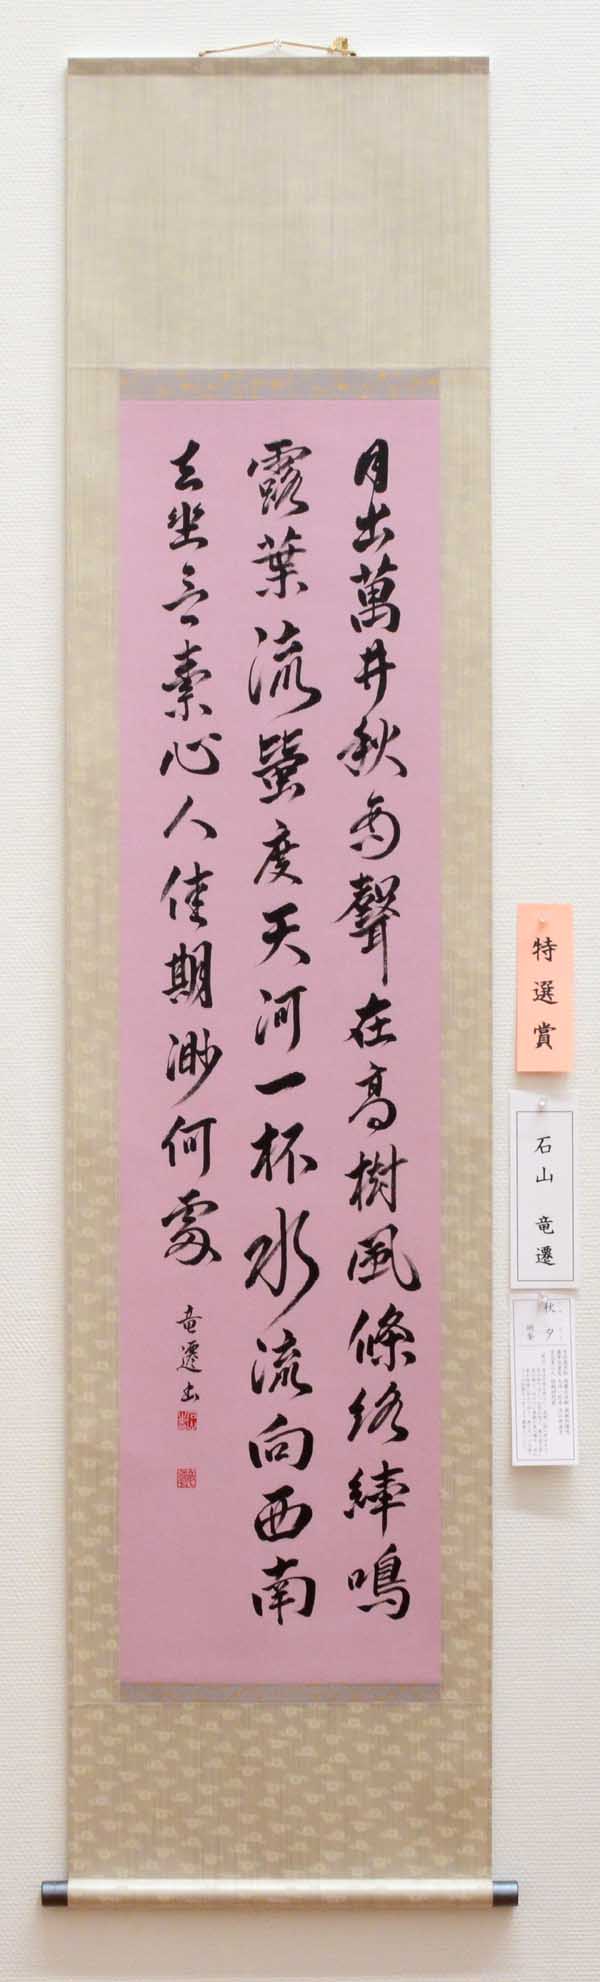 月出萬井秋商聲在高樹風條絡緯鳴
露葉流螢度天河一杯水流向西南
去坐無素心人佳期渺何處
竜遷書
特選賞
石山 竜遷
秋夕